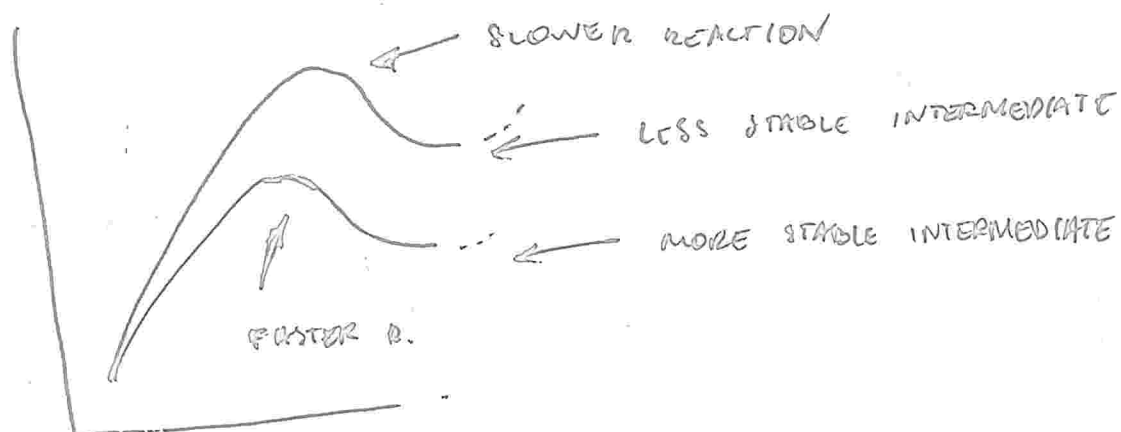 SLOWER REACTION
LESS STABLE INTERMEDIATE
MORE STABLE INTERMEDIATE
FASTER R.